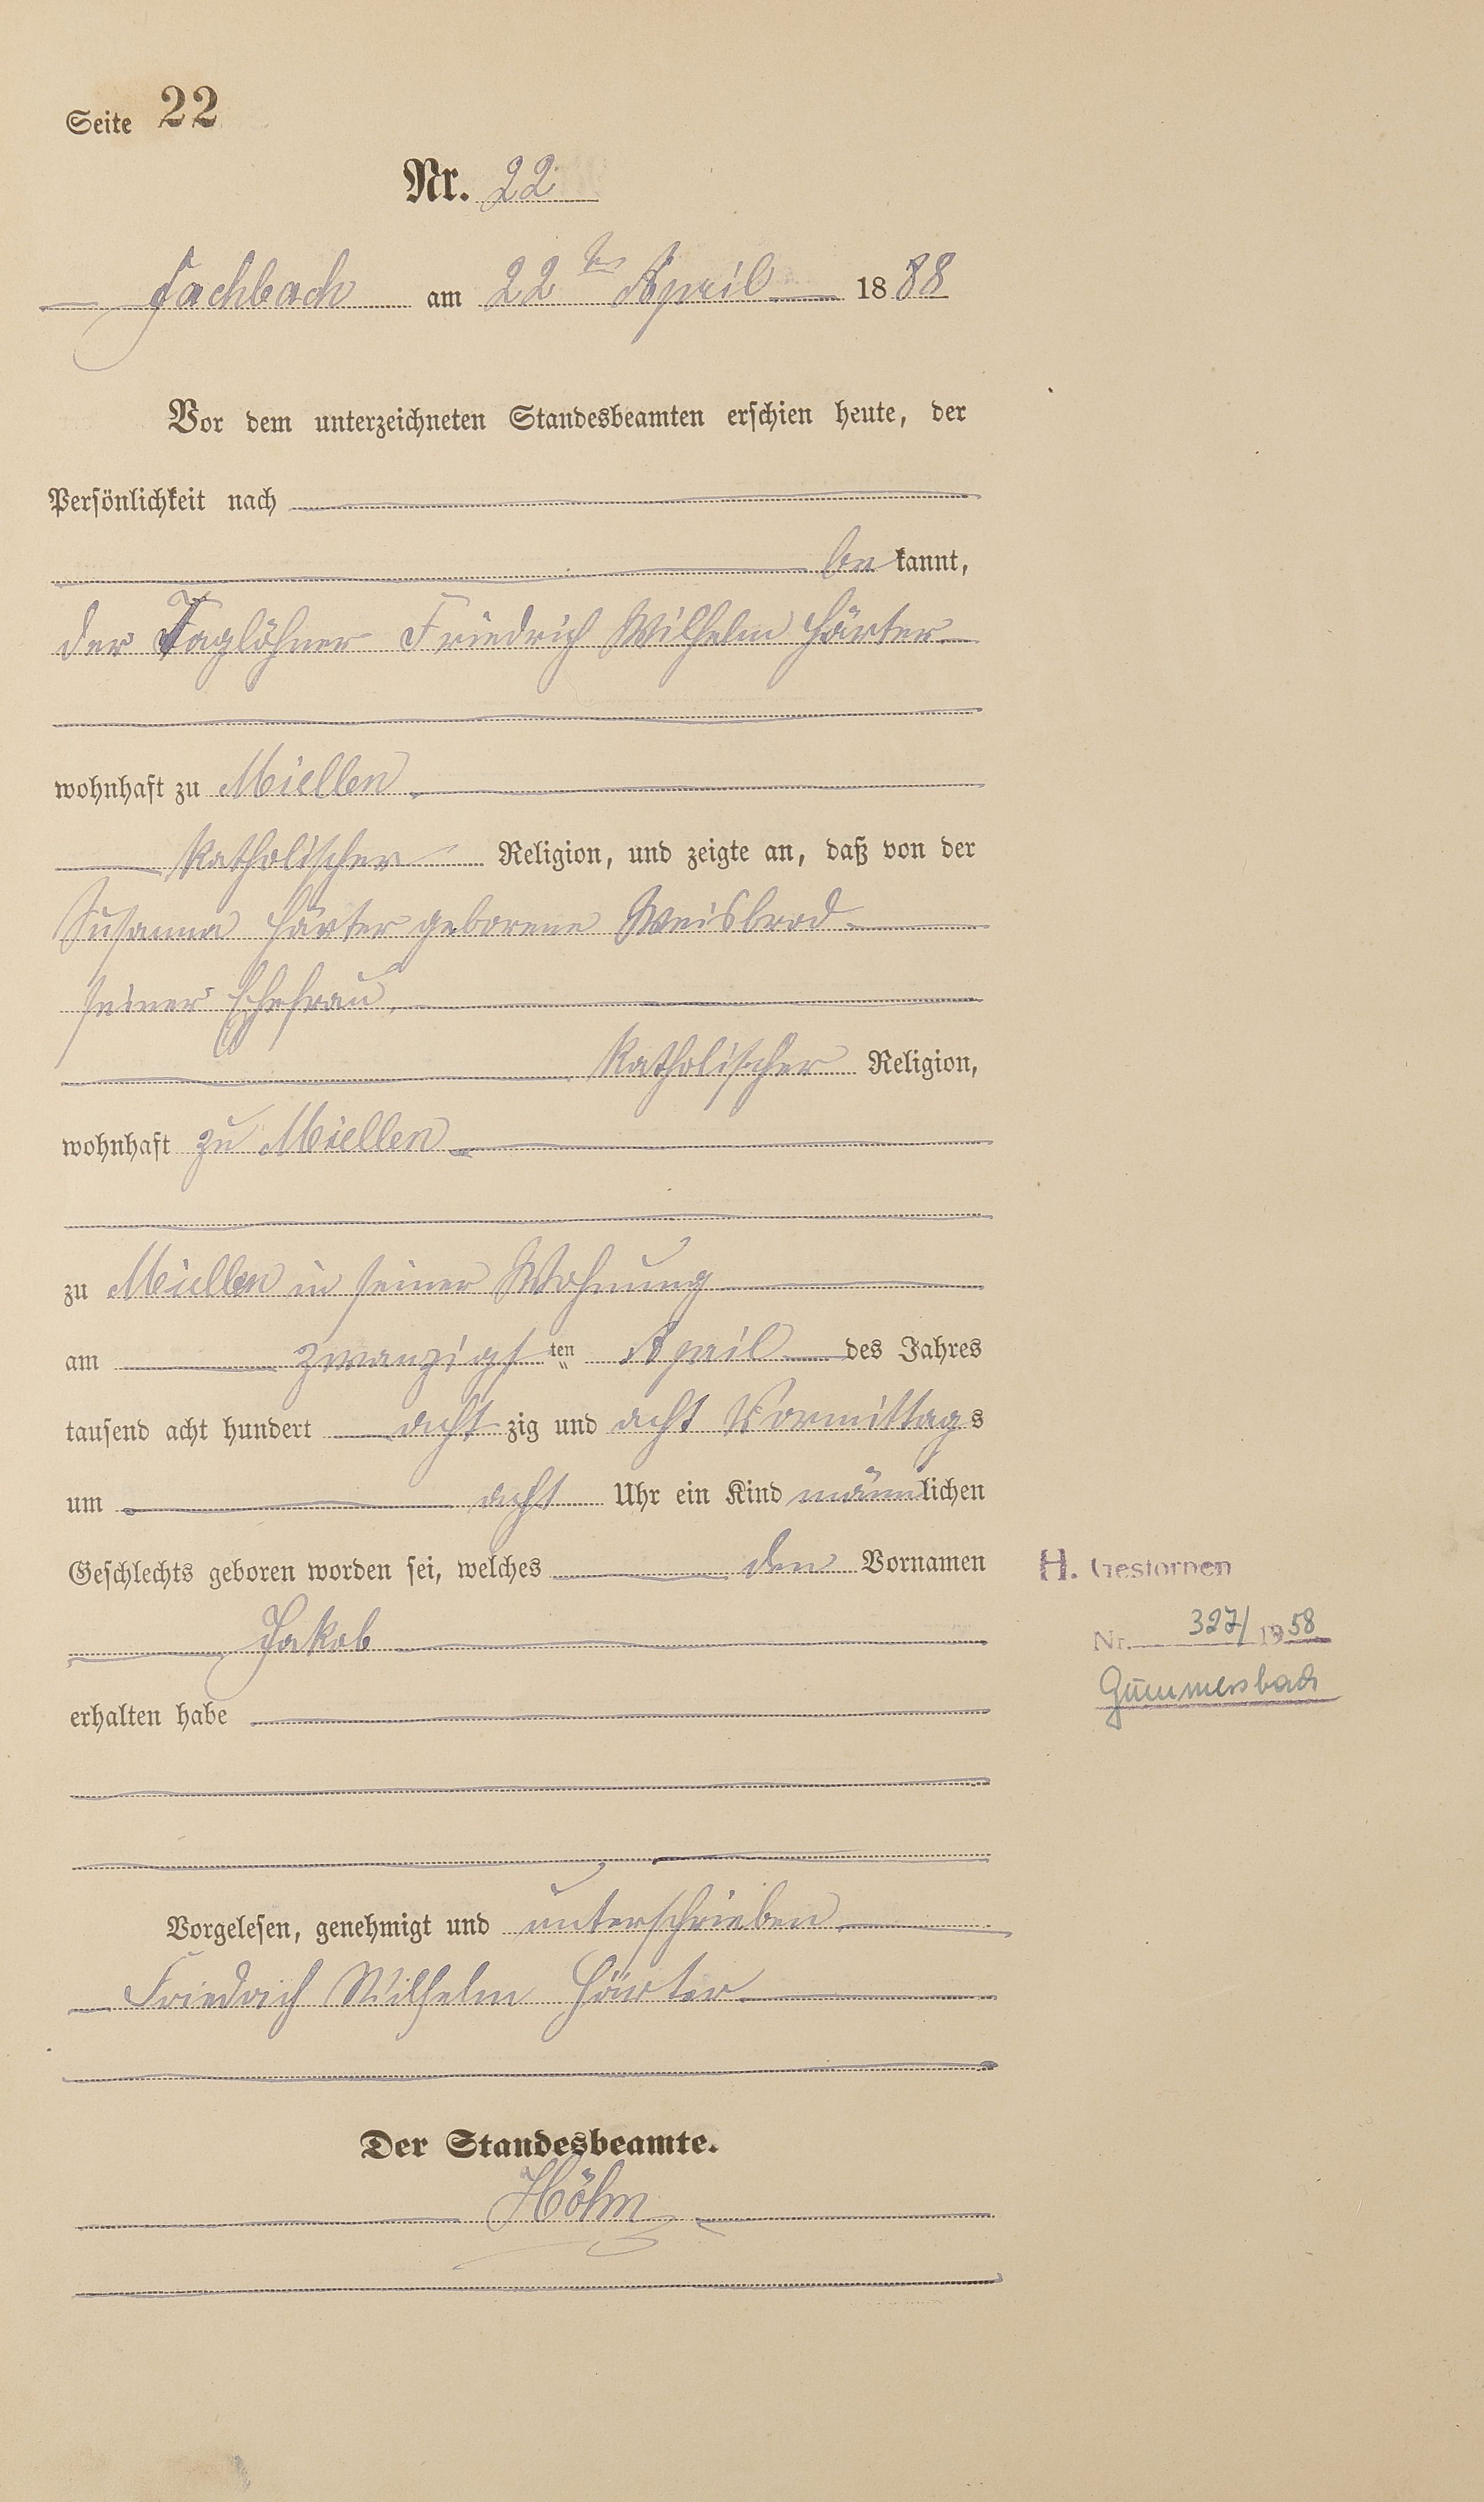 Seite 22
Nr. 22
Fachbach am 22ten April 1888
Vor dem unterzeichneten Standesbeamten erschien heute, der
Persönlichkeit nach
be kannt,
der Taglöhner Friedrich Wilhelm Härter
wohnhaft zu Miellen
katholischer Religion, und zeigte an, daß von der
Susanna Härter geborene Weisbrod
seiner Ehefrau,
katholischer Religion,
wohnhaft zu Miellen
zu Miellen in seiner Wohnung
am zwanzigsten April des Jahres
tausend acht hundert acht zig und acht Vormittags
um acht Uhr ein Kind männlichen
Geschlechts geboren worden sei, welches den Vornamen
Jakob
erhalten habe
Vorgelesen, genehmigt und unterschrieben
Friedrich Wilhelm Härter
Der Standesbeamte.
Höhn
H. Gestorben
Nr. 327/1958
Gummersbach